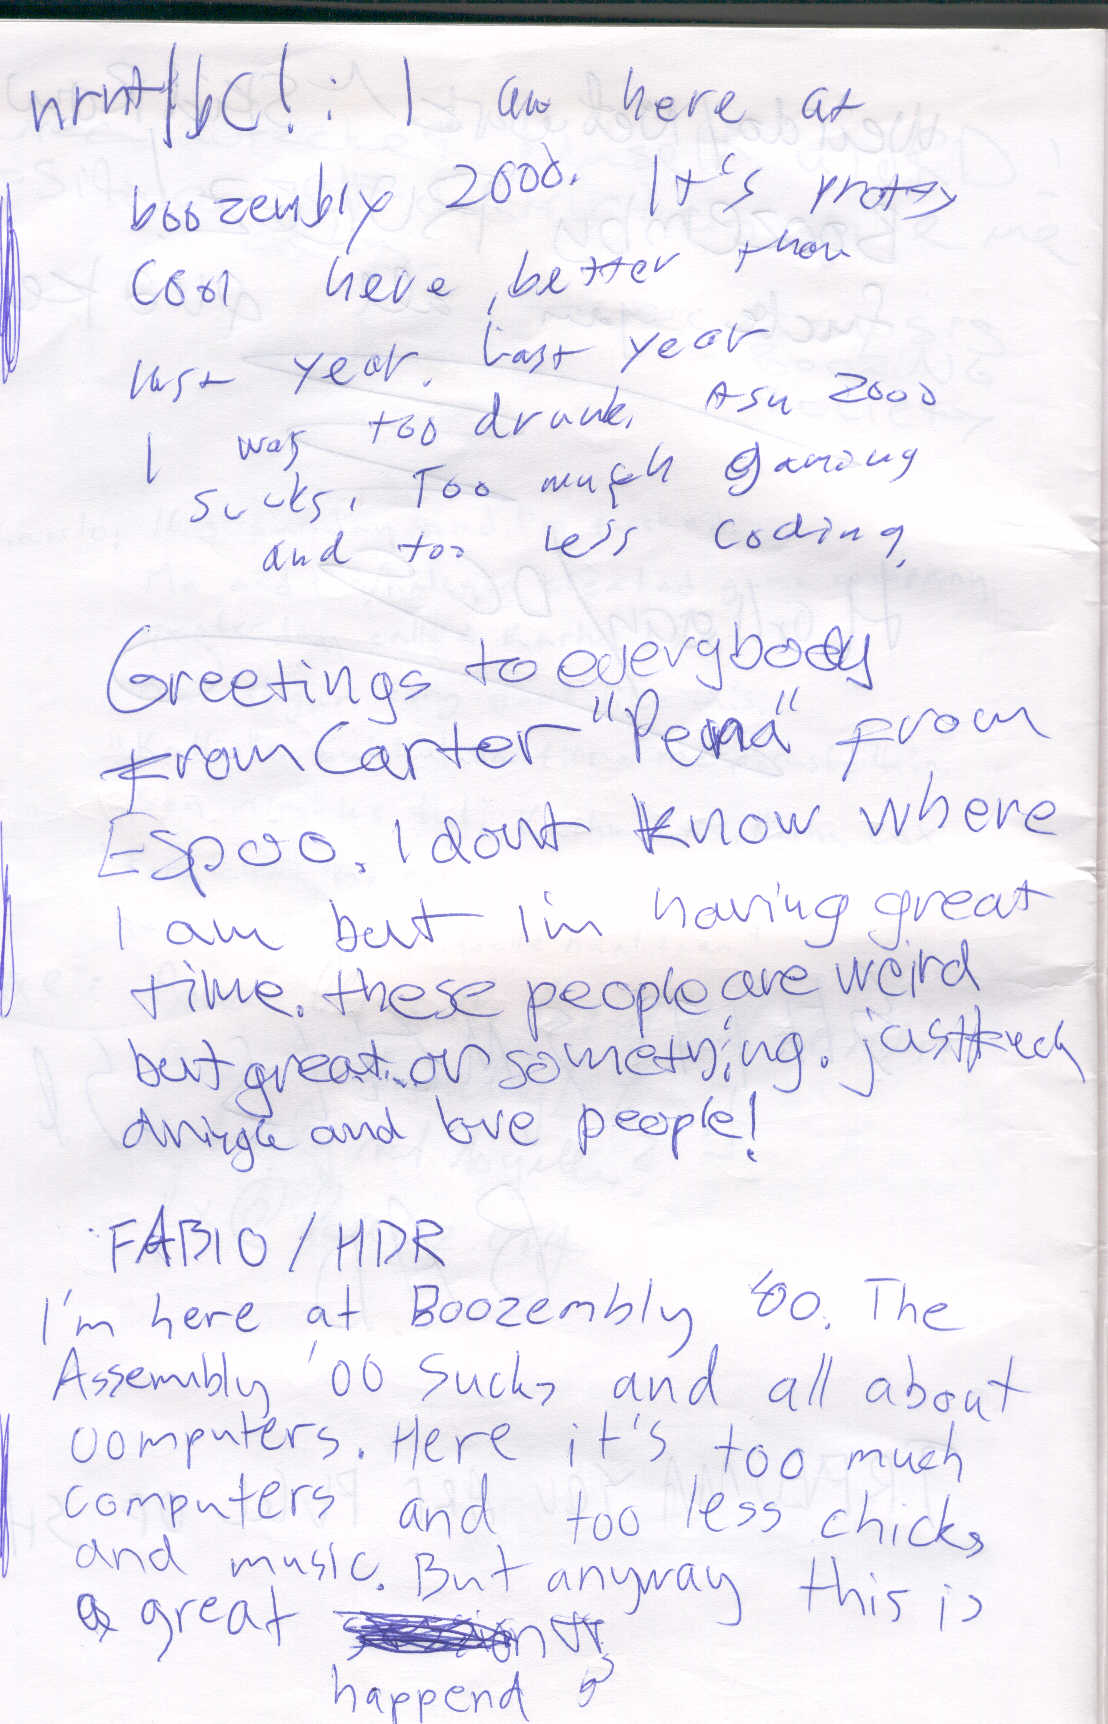 nrnt/bC!: I am here at
boozembly 2000. It's pretty
cool here, better than
last year. Last year
I was too drunk. Asm 2000
sucks. Too much gaming
and too less coding.
Greetings to everybody
from Carter "Pena" from
Espoo. I dont know where
I am but I'm having great
time. these people are weird
but great..or something. just
and love people!
FABIO / HDR
I'm here at Boozembly '00. The
Assembly '00 sucks and all about
computers. Here it's too much
computers and too less chicks
and music. But anyway this is
a great
happend